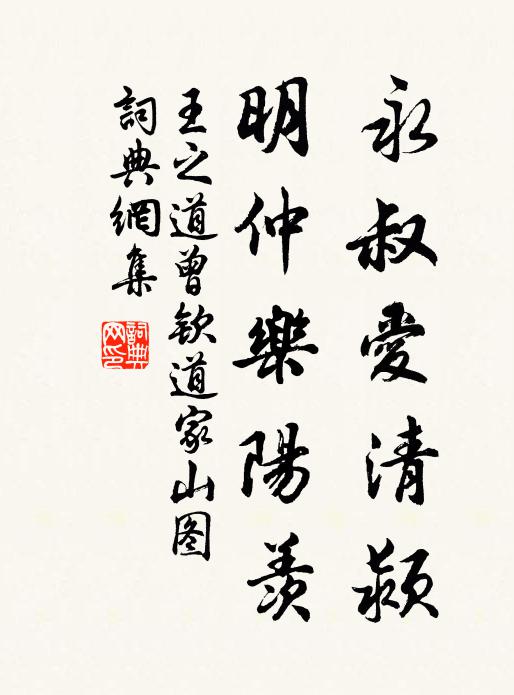 永叔愛清潁
明仲樂陽羨
王之道曾欽道家山图
詞典網集
詞典网印